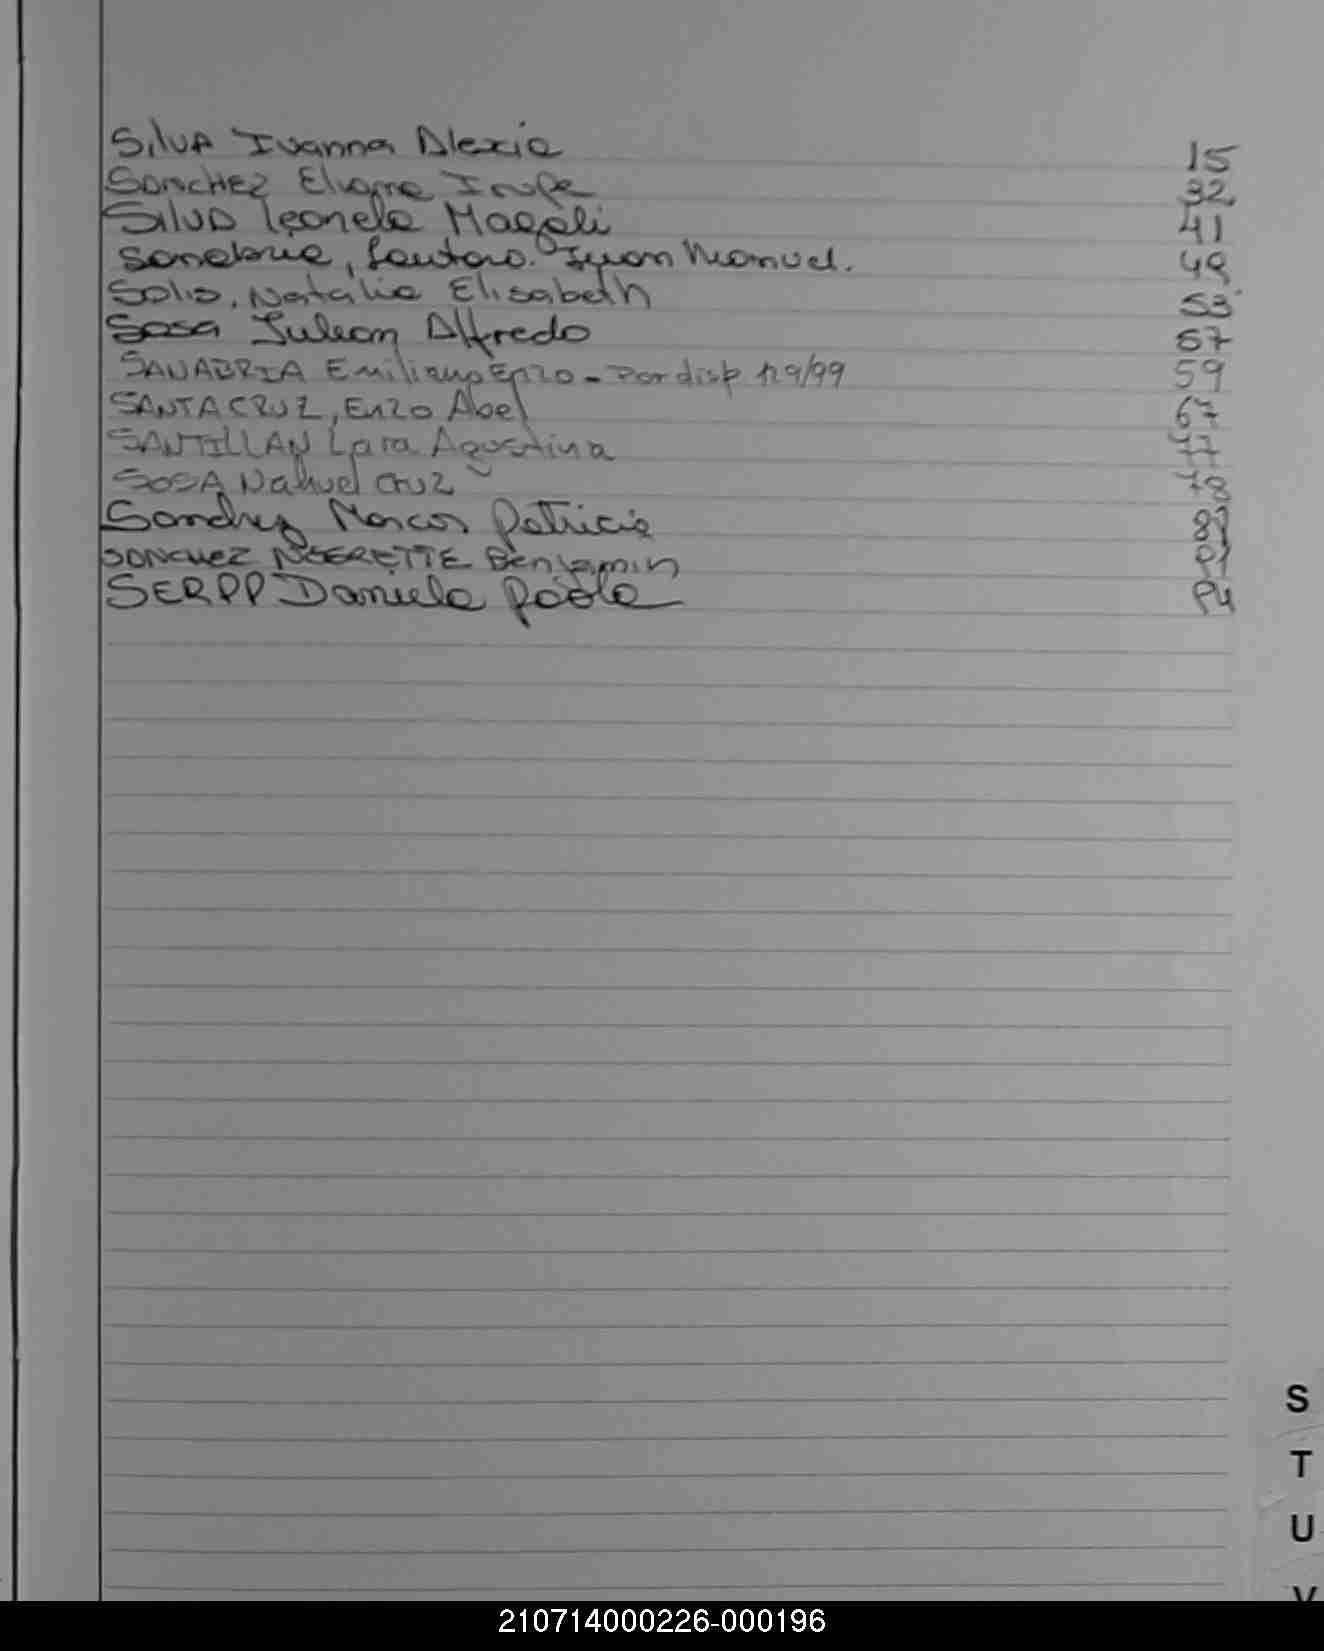 Silva Ivanna Alexia 15
SANCHEZ Eliana 32
SILVA Leonela Magali 41
Sanabria, Lautaro Juan Manuel. 49
Solis, Natalia Elisabeth 53
Sosa Julian Alfredo 57
SANABRIA Emiliano Enzo - Por disp 129/99 59
SANTA CRUZ, Enzo Abel 67
SANTILLAN Lara Agostina 77
SOSA Nahuel Cruz 78
Sanchez Marcos Patricio
SANCHEZ NEGRETTE Benjamin 91
SERPP Daniela Paola 94
S
T
U
V
210714000226-000196